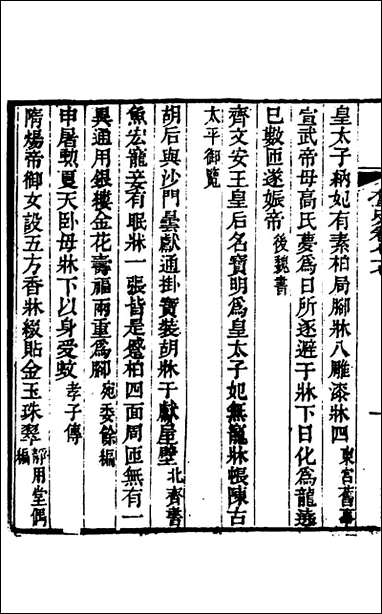 皇太子納妃有素柏局腳牀八雕漆牀四東宮舊事
宣武帝母高氏夢為日所逐避于牀下日化為龍遶
已數匝遂娠帝後魏書
齊文安王皇后名寶明為皇太子妃無寵牀帳陳古
太平御覽
胡后與沙門曇獻通掛寶裝胡牀于獻屋壁北齊書
魚宏龍妾有眠牀一張皆是蹙柏四面周匝無有一
異通用銀鏤金花壽福兩重為腳宛委餘編
申屠勲夏天臥母牀下以身愛蚊孝子傳
隋煬帝御女設五方香牀綴貼金玉珠翠部用堂偶編